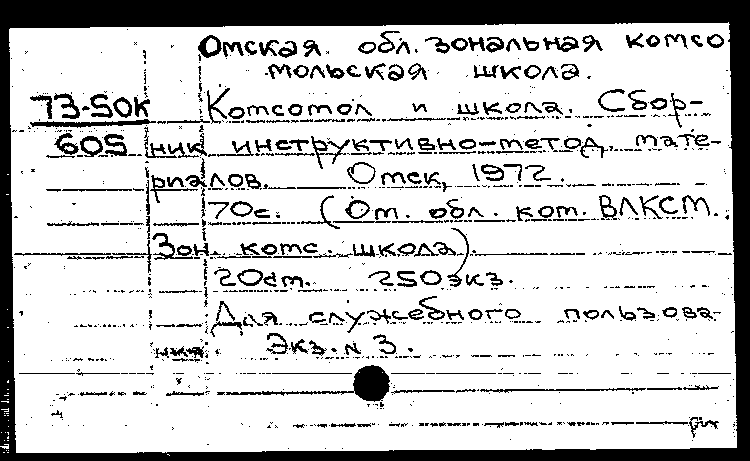 Омская обл. зональная комсо
мольская школа.
73-50к Комсомол и школа. Сбор-
605 ник инструктивно-метод. мате-
риалов. Омск, 1972.
70с. (Ом. обл. ком. ВЛКСМ.
Зон. комс. школа).
20см. 250экз.
Для служебного пользова-
ния. Экз. N 3.